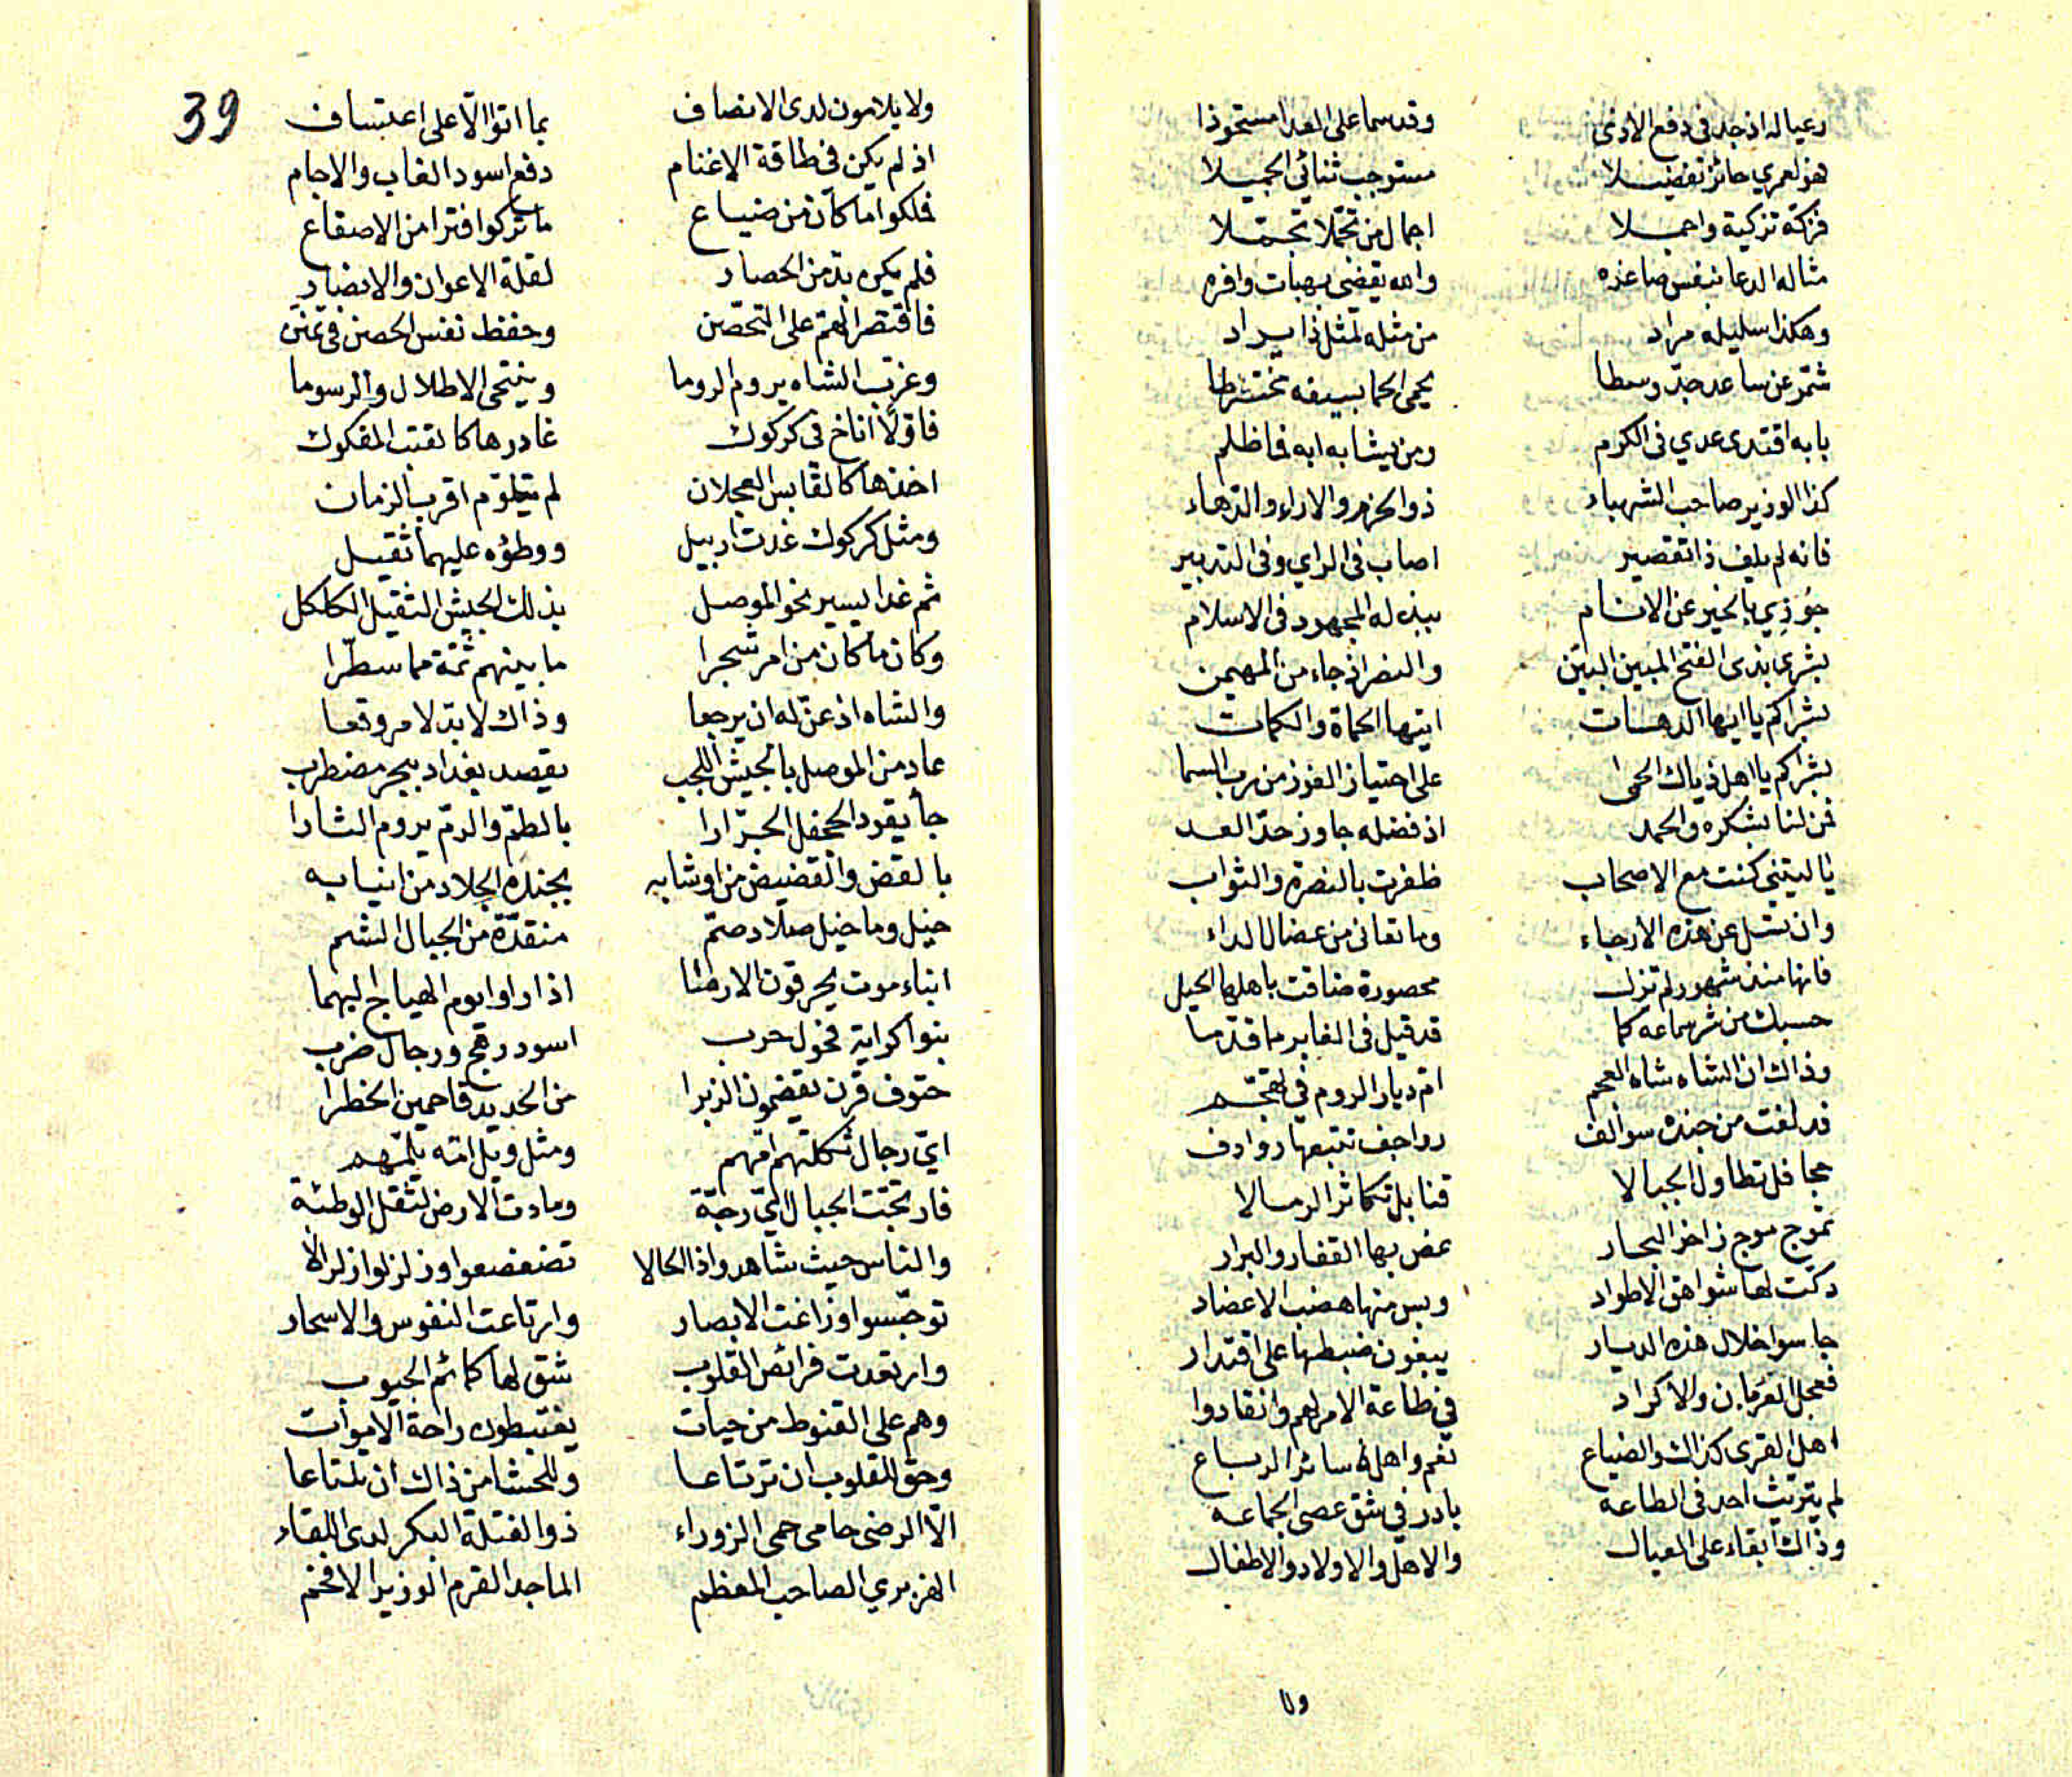 رعيا له اذ جد في دفع الاذى وقد سما على العدا مستحوذا
فهو لعمري حائز تفضيلا مستوجب ثنائي الجميلا
فزكه تزكية واجملا اجمال من تحملا تجملا
مثاله الدعا بنفس صاغره والله يقضي بهبات وافره
وهكذا سليله مراد من مثله لمثل ذا يراد
شمر عن ساعد جد وسطا يحمى الحما بسيفه مخترطا
بابه اقتدى عدي في الكرم ومن يشابه ابه فما ظلم
كذا الوزير صاحب الشهباء ذو الحزم والاراء والدهاء
فانه لم يلف ذا تقصير اصاب في الراي وفي التدبير
جوزي بالخير عن الانام ببذله المجهود في الاسلام
بشرى بذى الفتح المبين البين والنصر اذ جاء من المهيمن
بشراكم يا ايها الدهسات ايتها الحماة والكمات
بشراكم يا اهل ذياك الحمى على احتياز الفوز من رب السما
فمن لنا بشكره والحمد اذ فضله جاوز حد العد
يا ليتني كنت مع الاصحاب ظفرت بالنصرة والثواب
وان تسل عن هذه الارجاء وما تعانى من عضال الداء
فانها منذ شهور لم تزل محصورة ضاقت باهلها الحيل
حسبك من شر سماعه كما قد قيل في الغابر ما قدما
وذاك ان الشاه شاه العجم ام ديار الروم في تهجم
قد لفت من جنده سوالف رواجف تتبعها روادف
جحافل تطاول الجبالا قنابل تكاثر الرمالا
تموج موج زاخر البحار غص بها القفار والبرار
دكت لها شواهق الاطواد وبس منها هضب الاعضاد
جاسوا خلال هذه الديار يبغون ضبطها على اقتدار
فعجل العربان والاكراد في طاعة الامر لهم وانقادوا
اهل القرى كذاك والضياع نعم واهل سائر الرباع
لم يتريث احد في الطاعه بادر في شق عصى الجماعه
وذاك ابقاء على العيال والاهل والاولاد والاطفال
ولا
39
ولا يلامون لدى الانصاف بما اتوا الا على اعتساف
اذ لم يكن في طاقة الاغنام دفع اسود الغاب والاجام
فملكوا ما كان من ضياع ما تركوا فترا من الاصقاع
فلم يكن بد من الحصار لقلة الاعوان والانصار
فاقتصر الهم على التحصن وحفظ نفس الحصن في تمنن
وغرب الشاه يروم الروما وينتحى الاطلال والرسوما
فاولا اناخ في كركوك غادرها كالقتب المفكوك
اخذها كالقابس العجلان لم يتلوم اقرب الزمان
ومثل كركوك غدت اربيل ووطؤه عليهما ثقيل
ثم غدا يسير نحو الموصل بذلك الجيش الثقيل الكلكل
وكان ما كان من امر شجرا ما بينهم ثمة مما سطرا
والشاه اذ عن له ان يرجعا وذاك لا بد لامر وقعا
عاد من الموصل بالجيش اللجب يقصد بغداد ببحر مضطرب
جا يقود الجحفل الجرارا بالطم والرم يروم الثارا
بالقض والقضيض من اوشابه بجنده الجلاد من انيابه
خيل وما خيل صلاد صم منقدة من الجبال الشم
ابناء موت يحرقون الارما اذا راوا يوم الهياج اليهما
بنوا كرايتة فحول حرب اسود رهج ورجال ضرب
حتوف قرن يقضمون الزبرا من الحديد قاحمين الخطرا
اي رجال ثكلتهم امهم ومثل ويل امه يلمهم
فارتجت الجبال اي رجة ومادت الارض لثقل الوطئة
والناس حيث شاهدوا ذا الحالا تضعضعوا وزلزلوا زلزالا
توجسوا وزاغت الابصار وارتاعت النفوس والاسحار
وارتعدت فرائص القلوب شق لها كمائم الجيوب
وهم على القنوط من حيات يغتبطون راحة الاموات
وحق للقلوب ان ترتاعا وللحشا من ذاك ان تلتاعا
الا الرضى حامى حمى الزوراء ذو الفتلة البكر لدى اللقاء
الهزبري الصاحب المعظم الماجد القرم الوزير الافخم